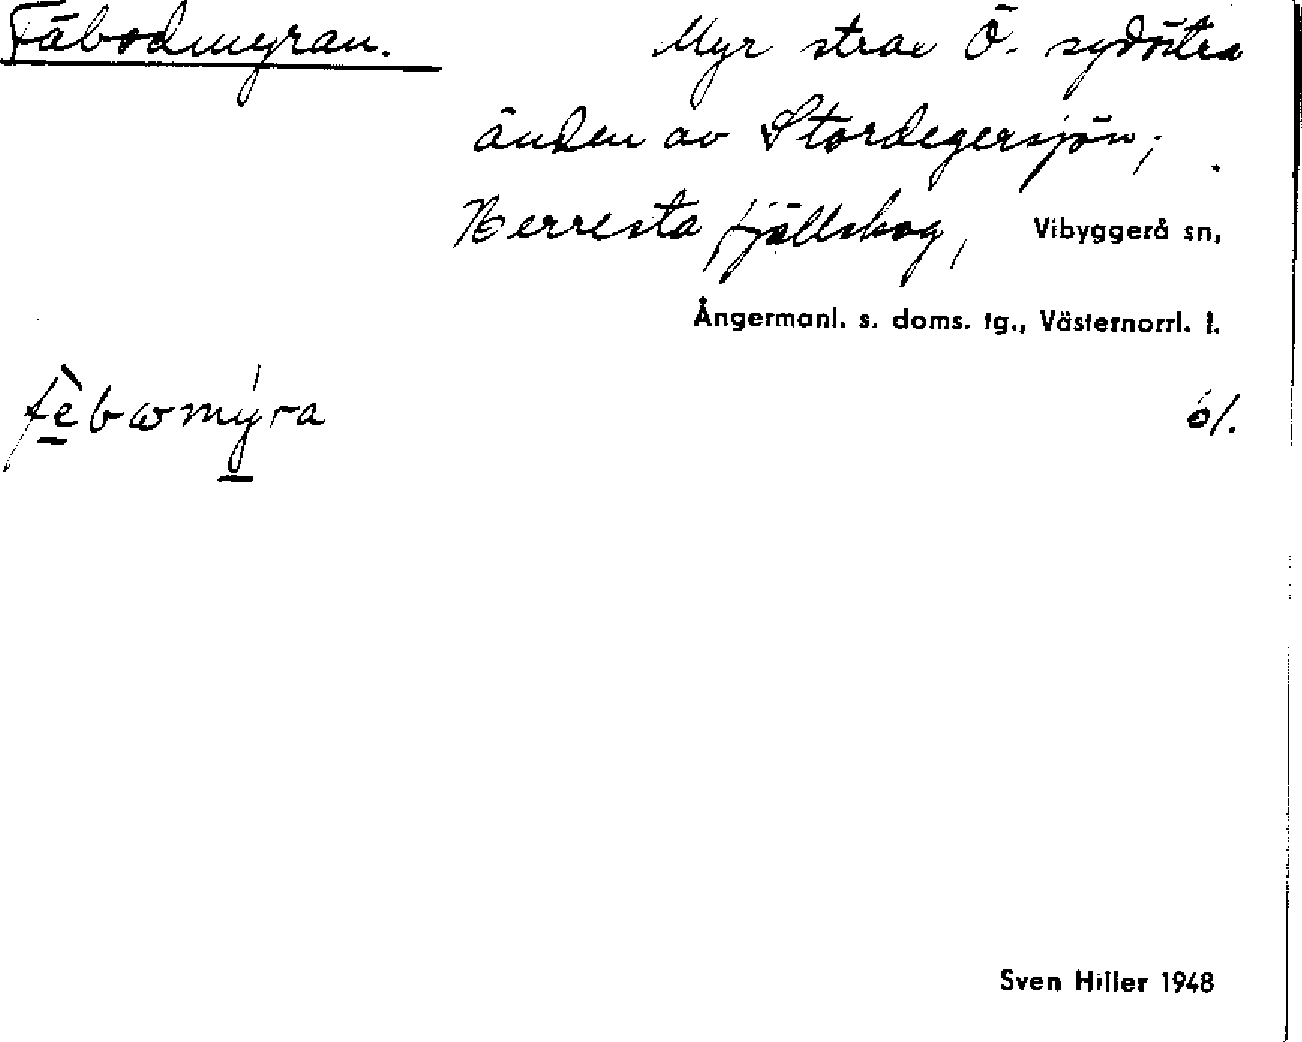 Fäbodmyran. Myr strax Ö. sydöstra
änden av Stordegersjön;
Herresta fjällskog, Vibyggerå sn,
Ångermanl. s. doms. tg., Västernorrl. l.
fèbωmýra ó/.
Sven Hiller 1948